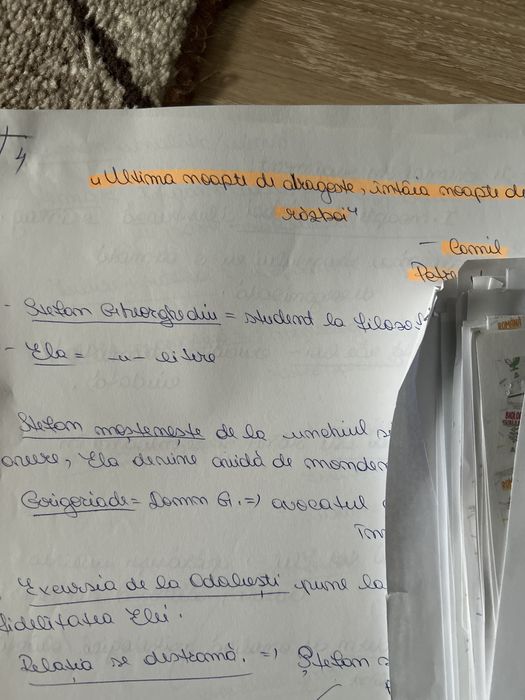 T4
„Ultima noapte de dragoste, întâia noapte de
război"
- Camil
Petr
- Ștefan Gheorghidiu = student la filozof
- Ela = -"- litere
Ștefan moștenește de la unchiul
avere, Ela devine avidă de monden
Grigoriade = Domn G. => avocatul
Excursia de la Odobești pune la
fidelitatea Elei.
Relația se destramă. => Ștefan
ROMÂNĂ
BIOLO